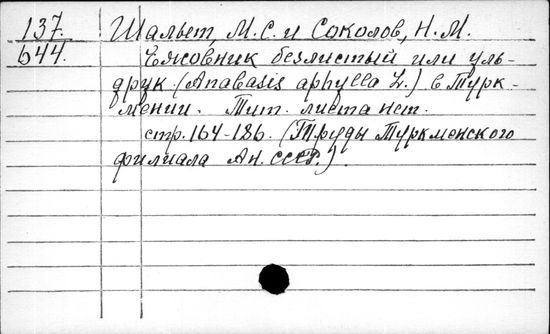 137. Шальет М.С. и Соколов, Н.М.
644. Ежовник безлистый или уль-
друк (Anabasis aphylla L.) в Турк-
мении. Тит. листа нет.
стр. 164-186. (Труды Туркменского
филиала Ан. СССР.).